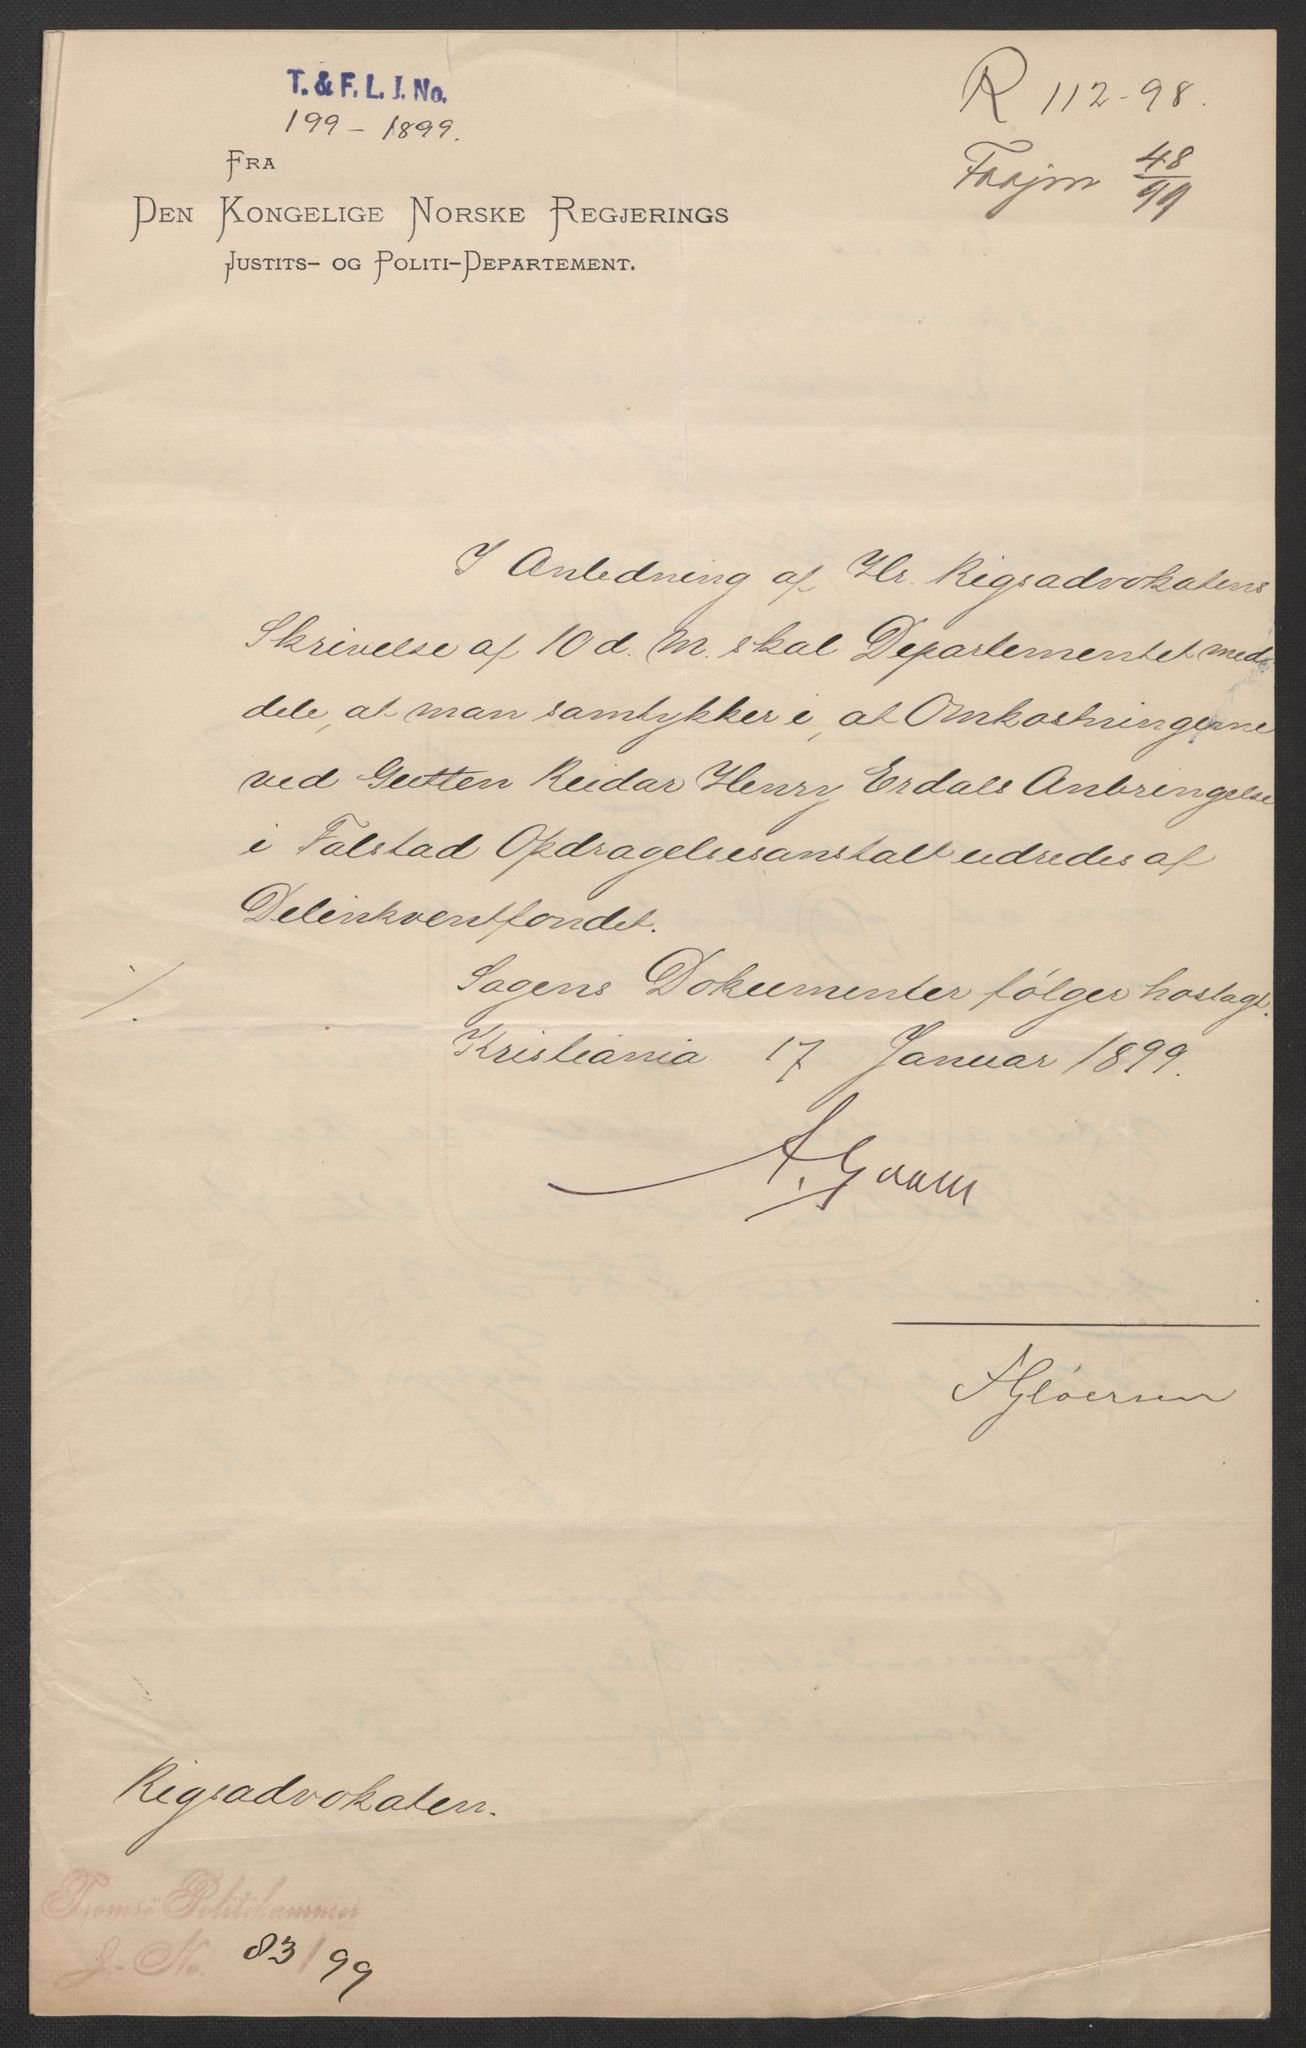 T. & F. L. J. No.
199 - 1899.
R 112-98.
48
99
FRA
DEN KONGELIGE NORSKE REGJERINGS
JUSTITS- OG POLITI-DEPARTEMENT.
I Anledning af Hr. Rigsadvokatens
Skrivelse af 10 d. M. skal Departementet med-
dele, at man samtykker i, at Omkostningerne
ved Gutten Reidar Henry Erdals Anbringelse
i Falstad Opdragelsesanstalt udredes af
Delinkventfondet.
Sagens Dokumenter følger hoslagt.
Kristiania 17 Januar 1899.
A. Qvam
Gløersen
Rigsadvokaten.
Tromsø Politikammer
J. No. 83/99